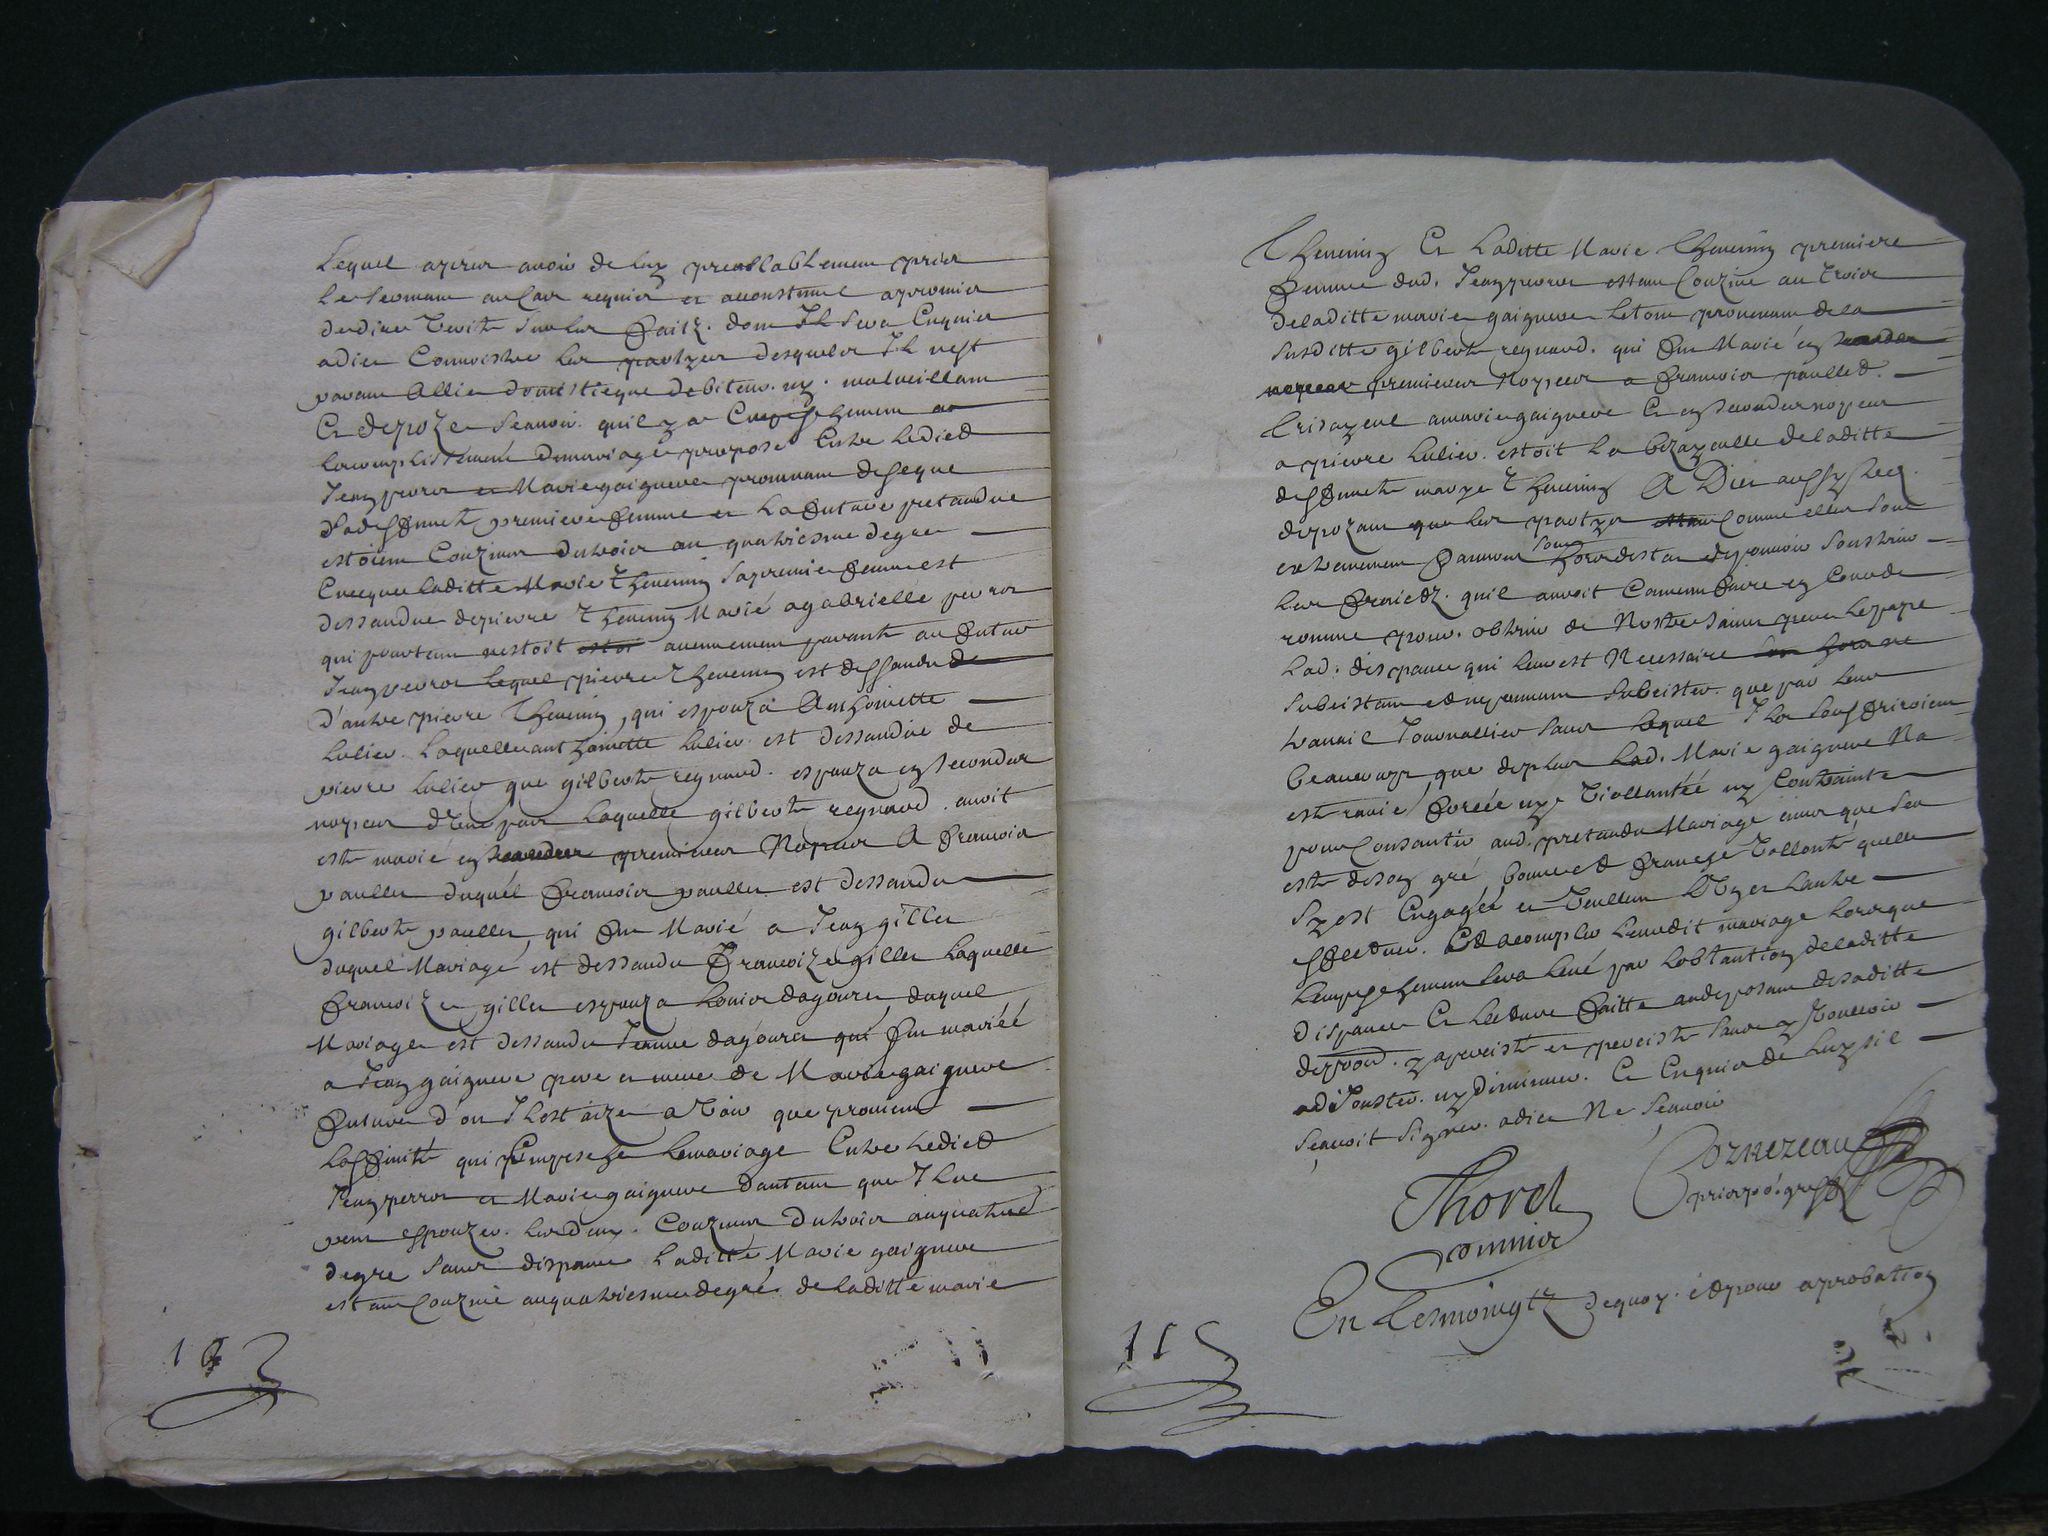 Lequel apres avoir de luy prealablement pris
le serment au cas requis et acoustumé a promis
de dire verité sur les faitz dont Il sera Enquis
a dict Connoistre les partyes desquelles Il n'est
parant Allié domesticque debiteur ny malveillant
Et depoze scavoir quil y a Empeschement a
lacomplissement du mariage proposé Entre ledict
Jean perros et Marie gaigneve provenant de ce que
sa deffuncte premiere femme et la future pretandue
estoient Couzines du trois au quatriesme degre
Encequee laditte Marie Thevenin sa premie femme est
dessandue de pierre Thevenin Marié a gabrielle perros
qui pourtant nestoit aucunement parante au futur
Jean perros lequel pierre Thevenin est dessandu de
d'autre pierre Thevenin, qui espouza Anthoinette
lulier laquelle anthoinette lulier est dessandue de
pierre lulier que gilberte regnaud espouza en secondes
nopces d'une part laquelle gilberte regnaud avoit
esté marié en premieres Nopces A francois
paulles duquel francois paulles est dessandu
gilberte paulles, qui fut Marié a Jean gilles
duquel Mariage est dessandu francoize gilles laquelle
francoize gilles espouza louis dagoures duquel
Mariage est dessandu Jeanne dagoures qui fut mariéé
a Jean gaigneve pere et mere de Marie gaigneve
future d'ou Il est aizé a voir que provient
laffinité qui Empesche le mariage Entre ledict
Jean perros et Marie gaigneve dautant que Il ne
peut espouzer les deux Couzines du trois au quatries
degre sans dispance laditte Marie gaigneve
estant Couzine au quatriesme degré de laditte marie
1
Thevenin Et laditte Marie Thevenin premiere
femme dud. Jean perros estant Couzine au trois
de laditte marie gaigneve le tout provenant de la
susditte gilberte regnaud qui fut Marié en
premieres Nopces a francois paulles
trisayeul a marie gaigneve Et en secondes nopces
a pierre lulier estoit la bizayeulle de laditte
deffuncte marye Thevenin A Dict aussy led.
depozant que les partyes Comme elles sont
extremement pauvres sont hors destat de pouvoir soustenir
les fraictz quil auroit Convenu faire en Cour de
romme pour obtenir de Nostre saint pere le pape
lad. dispance qui leur est Necessaire
subcistant et ne pouvant subcister que par leur
travail Journallier sans lequel Ils souffriroient
beaucoup que de plus lad. Marie gaigneve Na
esté ravie forcée ny viollantéé ny Contrainte
pour Consantir aud. pretandu Mariage ains que sea
esté de son gré bonne et franche vollonté quelle
sy est Engagéé et veullent l'un et l'autre
Effectuer et acomplir leurdit mariage lors que
lempeschement sera levé par lobtantion de laditte
dispance Et lecture faitte au depozant de saditte
depozon. y a percisté et perciste sans y voulloir
adiouster ny diminuer Et Enquis de luy sil
scavoit Signer a dict Ne scavoir
Thorel
Commis
Cornezeau
En tesmoingtz dequoy et pour aprobation
115